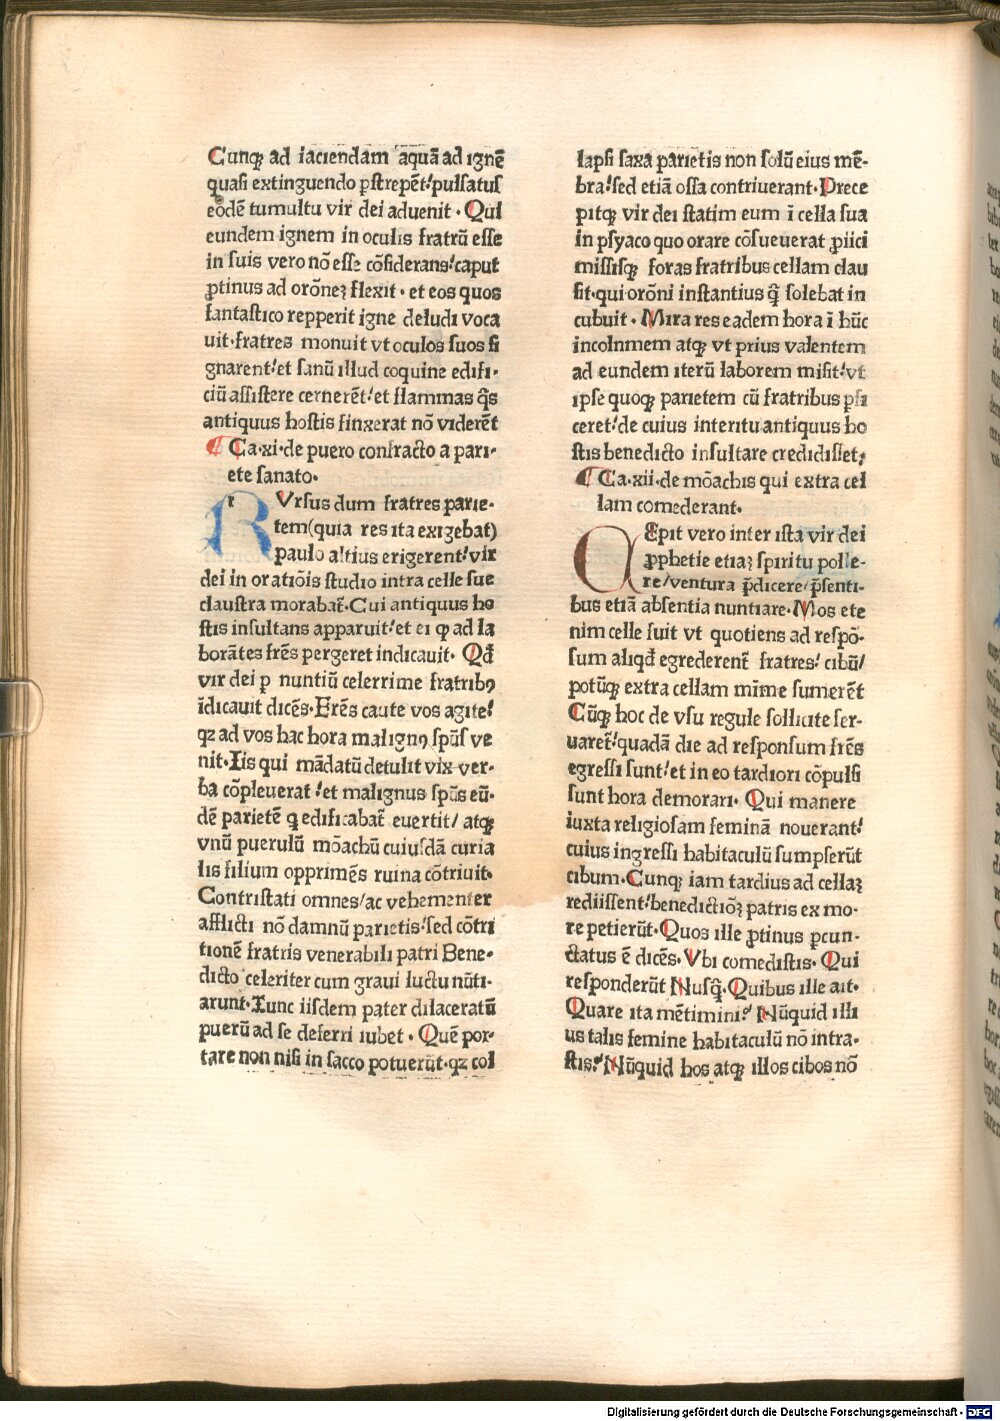 Cunqꝫ ad iaciendam aquā ad ignē
quaſi extinguendo ꝑſtrepēt:́pulſatuſ
eōdē tumultu vir dei aduenit · Qui
eundem ignem in oculis fratrū eſſe
in ſuis vero nō eſſe cōſiderans:́caput
ꝓtinus ad orōneꝫ flexit · et eos quos
fantaſtico repperit igne deludi voca
uit·fratres monuit vt oculos ſuos ſi
gnarent:́et ſanū illud coquine edifi·
ciū aſſiſtere cernerēt:́et flammas q̄s
antiquus hoſtis finxerat nō viderēt
¶ Ca·xi·de puero contracto a pari·
ete ſanato·
R Vrſus dum fratres parie·
tem(quia res ita exigebat)
paulo altius erigerent:́vir
dei in oratiōis ſtudio intra celle ſue
clauſtra morabat̄·Cui antiquus ho
ſtis inſultans apparuit:́et ei ꝙ ad la
borātes frēs pergeret indicauit· Qđ
vir dei ꝑ nuntiū celerrime fratribꝰ
īdicauit dicēs·Frēs caute vos agite:́
qꝫ ad vos hac hora malignꝰ ſpūs ve
nit·Iis qui mādatū detulit vix ver·
ba cōpleuerat :́et malignus ſpūs eū·
dē parietē q̄ edificabat̄ euertit/ atqꝫ
vnū puerulū mōachū cuiuſdā curia
lis filium opprimēs ruina cōtriuit·
Contriſtati omnes/ac vehementer
afflicti nō damnū parietis:́ſed cōtri
tionē fratris venerabili patri Bene·
dicto celeriter cum graui luctu nūti·
arunt·Tunc iiſdem pater dilaceratū
puerū ad ſe deferri iubet · Quē por·
tare non niſi in ſacco potuerūt·qꝫ col
lapſi ſaxa parietis non ſolū eius mē·
bra:́ſed etiā oſſa contriuerant·Prece
pitqꝫ vir dei ſtatim eum ī cella ſua
in pſyaco quo orare cōſueuerat ꝓiici
miſſiſqꝫ foras fratribus cellam clau
ſit·qui orōni inſtantius q̄ ſolebat in
cubuit · Mira res eadem hora ī hūc
incolnmem atqꝫ vt prius valentem
ad eundem iterū laborem miſit:́vt
ipſe quoqꝫ parietem cū fratribus ꝑfi
ceret:́de cuius interitu antiquus ho
ſtis benedicto inſultare credidiſſet;
¶ Ca·xii·de mōachis qui extra cel
lam comederant·
C Epit vero inter iſta vir dei
ꝓphetie etiaꝫ ſpiritu polle·
re/ventura p̄dicere/p̄ſenti·
bus etiā abſentia nuntiare·Mos ete
nim celle fuit vt quotiens ad reſpō·
ſum aliqđ egrederent̄ fratres:́ cibū/
potūqꝫ extra cellam mīme ſumerēt
Cūqꝫ hoc de vſu regule ſollicite ſer·
uaret̄:́quadā die ad reſponſum frēs
egreſſi ſunt:́et in eo tardiori cōpulſi
ſunt hora demorari· Qui manere
iuxta religioſam feminā nouerant:́
cuius ingreſſi habitaculū ſumpſerūt
cibum·Cunqꝫ iam tardius ad cellaꝫ
rediiſſent:́benedictiōꝫ patris ex mo·
re petierūt·Quos ille ꝓtinus ꝑcun·
ctatus ē dicēs·Vbi comediſtis·Qui
reſponderūt Nuſq̄·Quibus ille ait·
Quare ita mētimini? Nūquid illi
us talis femine habitaculū nō intra·
ſtis? Nūquid hos atqꝫ illos cibos nō
Digitalisierung gefördert durch die Deutsche Forschungsgemeinschaft - DFG